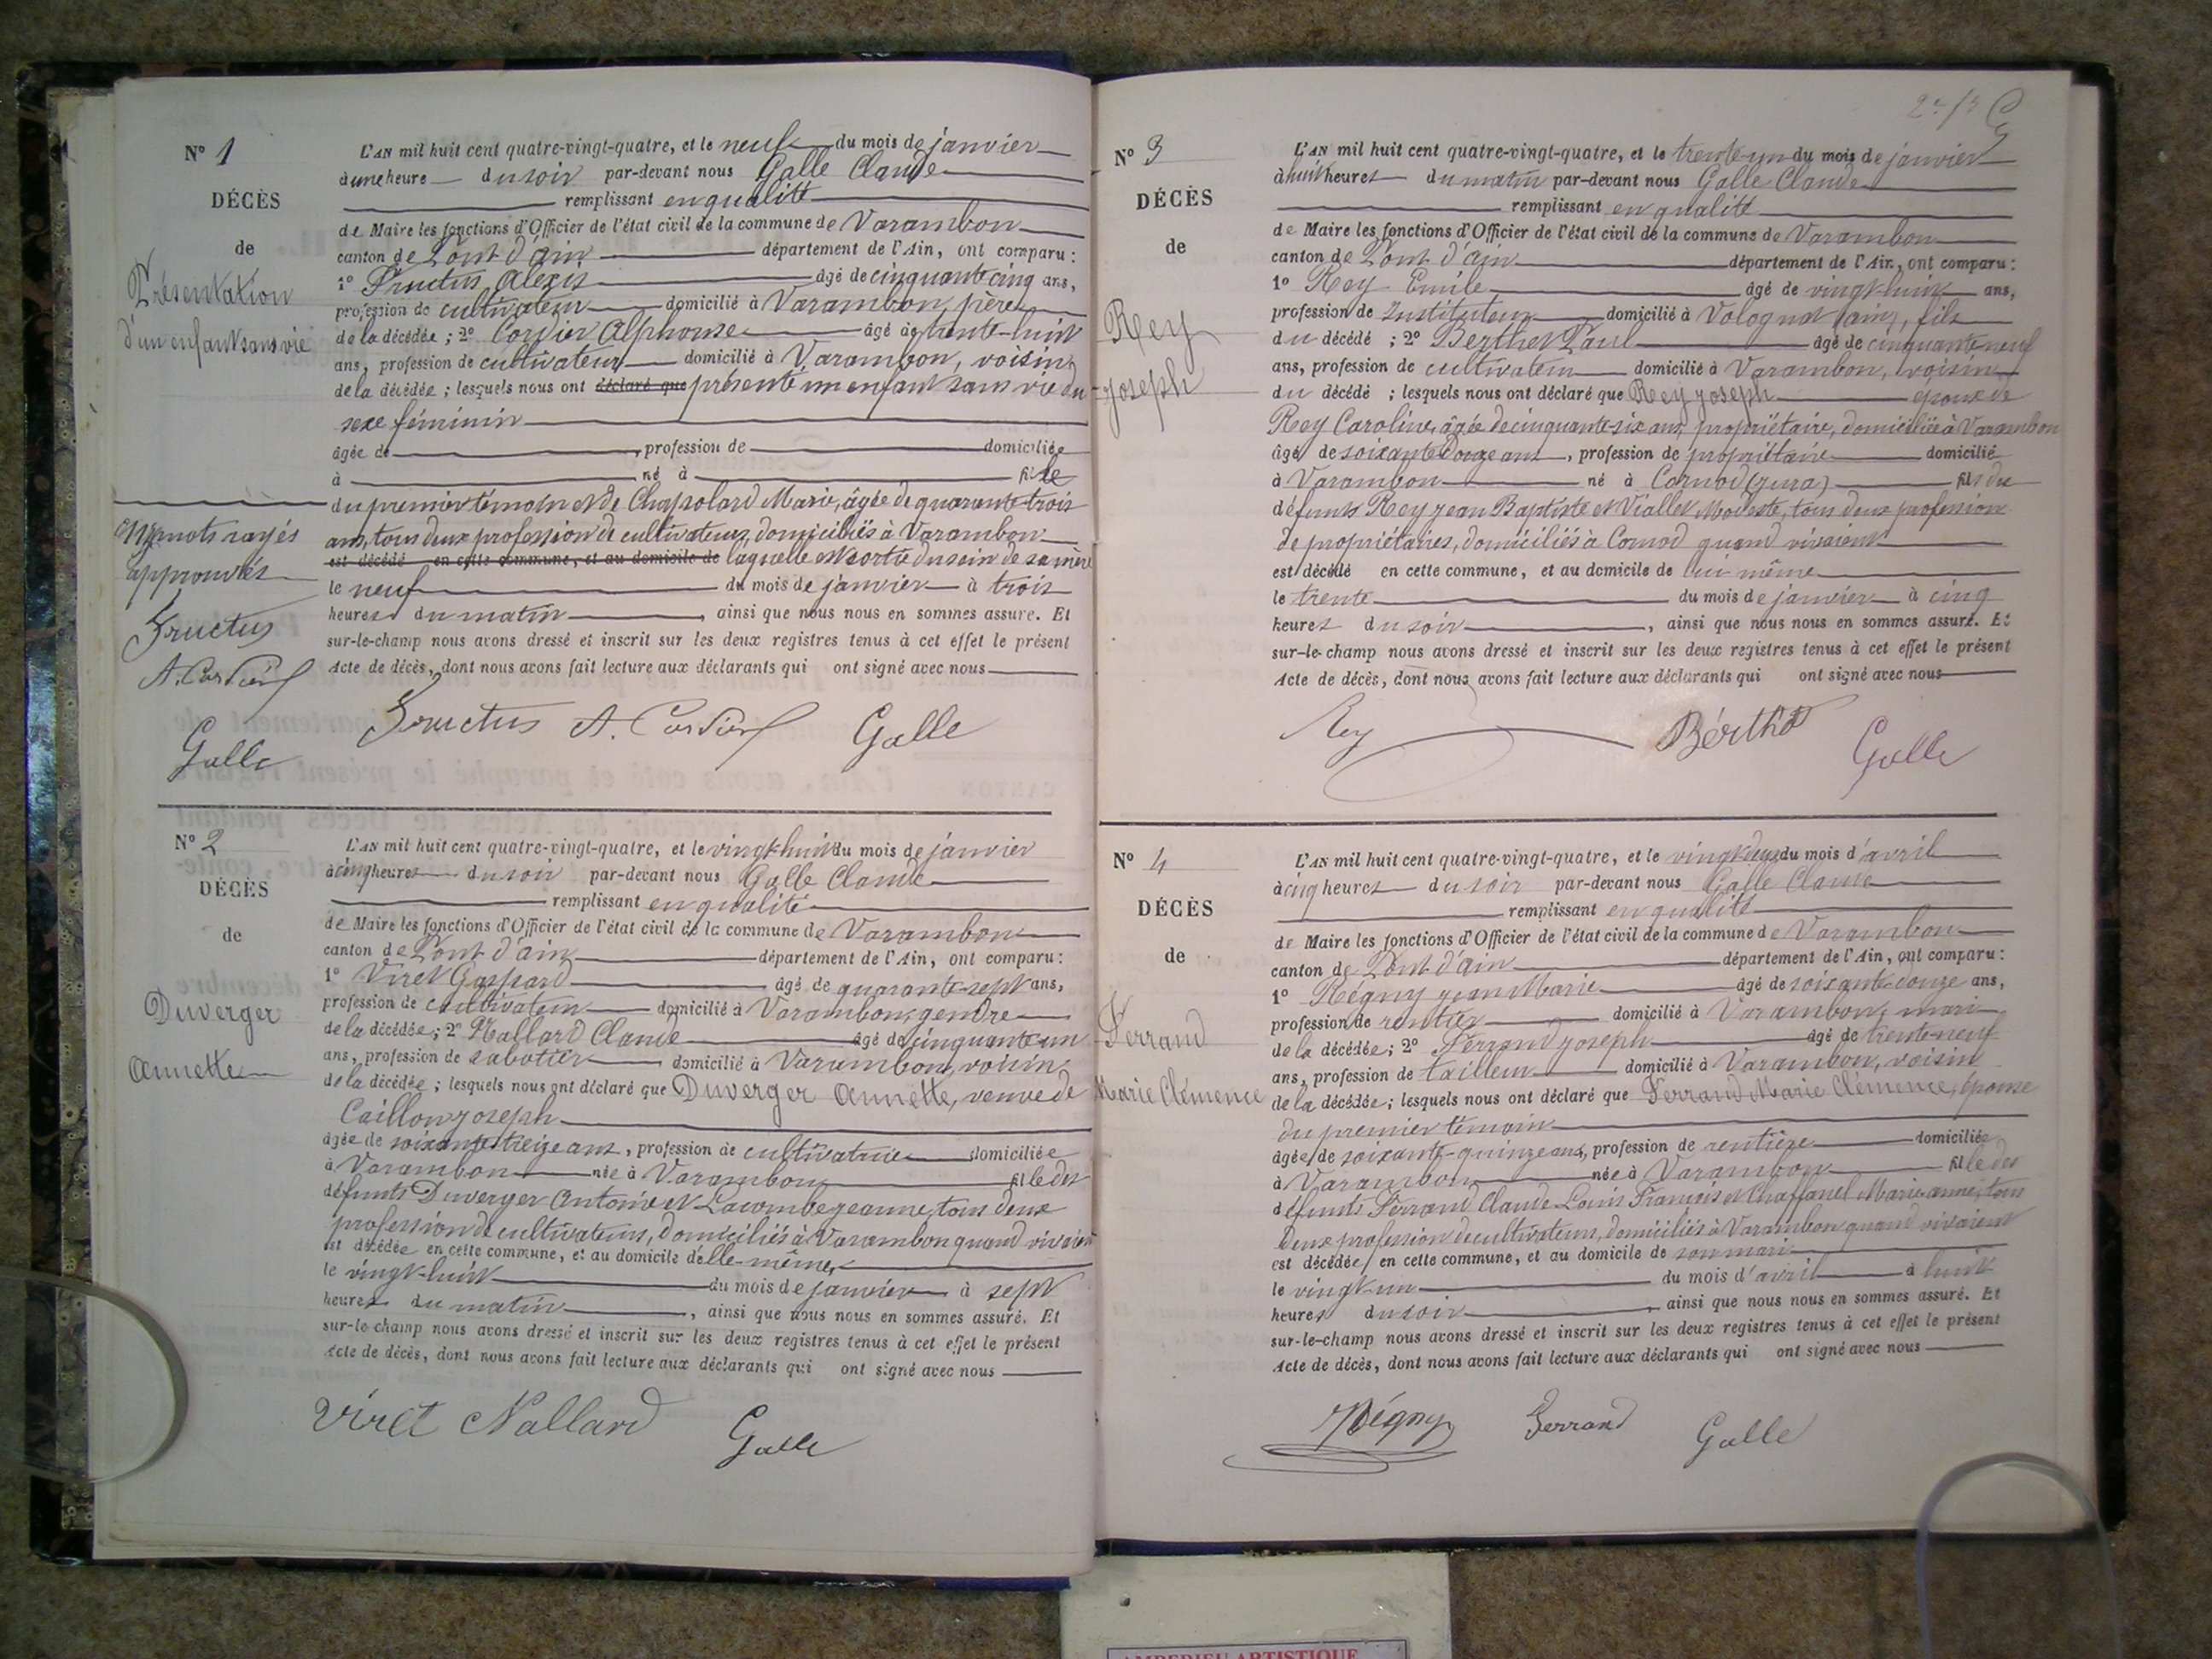 N° 1
DÉCÈS
de
Présentation
d'un enfant sans vie
L'AN mil huit cent quatre-vingt-quatre, et le neuf du mois de janvier
à une heure du soir par-devant nous Galle Claude
remplissant en qualité
de Maire les fonctions d'Officier de l'état civil de la commune de Varambon
canton de Pont d'ain département de l'Ain, ont comparu :
1° Fructus Alexis âgé de cinquante cinq ans,
profession de cultivateur domicilié à Varambon, père
de la décédée ; 2° Cordier Alphonse âgé de trente-huit
ans, profession de cultivateur domicilié à Varambon, voisin
de la décédée ; lesquels nous ont déclaré que présenté un enfant sans vie du
sexe féminin
âgée de , profession de domiciliée
à né à fille
du premier témoin et de Chapolard Marie, âgée de quarante-trois
ans, tous deux profession de cultivateurs, domiciliés à Varambon
est décédé en cette commune, et au domicile de laquelle est sortie du sein de sa mère
le neuf du mois de janvier à trois
heures du matin , ainsi que nous nous en sommes assuré. Et
sur-le-champ nous avons dressé et inscrit sur les deux registres tenus à cet effet le présent
Acte de décès, dont nous avons fait lecture aux déclarants qui ont signé avec nous
mots rayés
approuvés
Fructus
A. Cordier
Galle
Fructus A. Cordier Galle
N° 2
DÉCÈS
de
Duverger
Annette
L'AN mil huit cent quatre-vingt-quatre, et le vingt-huit du mois de janvier
à cinq heures du soir par-devant nous Galle Claude
remplissant en qualité
de Maire les fonctions d'Officier de l'état civil de la commune de Varambon
canton de Pont d'ain département de l'Ain, ont comparu :
1° Viret Gaspard âgé de quarante-sept ans,
profession de cultivateur domicilié à Varambon, gendre
de la décédée ; 2° Nallard Claude âgé de cinquante un
ans, profession de sabotier domicilié à Varambon, voisin
de la décédée ; lesquels nous ont déclaré que Duverger Annette, veuve de
Caillon joseph
âgée de soixante treize ans, profession de cultivatrice domiciliée
à Varambon née à Varambon fille des
défunts Duverger Antoine et Lacombe jeanne, tous deux
profession de cultivateurs, domiciliés à Varambon quand vivaient
est décédée en cette commune, et au domicile d'elle-même,
le vingt-huit du mois de janvier à sept
heures du matin , ainsi que nous nous en sommes assuré. Et
sur-le-champ nous avons dressé et inscrit sur les deux registres tenus à cet effet le présent
Acte de décès, dont nous avons fait lecture aux déclarants qui ont signé avec nous
Viret Nallard Galle
N° 3
DÉCÈS
de
Rey
joseph
L'AN mil huit cent quatre-vingt-quatre, et le trente-un du mois de janvier
à huit heures du matin par-devant nous Galle Claude
remplissant en qualité
de Maire les fonctions d'Officier de l'état civil de la commune de Varambon
canton de Pont d'ain département de l'Ain, ont comparu :
1° Rey Emile âgé de vingt-huit ans,
profession de Instituteur domicilié à Volognat (ain), fils
du décédé ; 2° Berthet Paul âgé de cinquante-neuf
ans, profession de cultivateur domicilié à Varambon, voisin
du décédé ; lesquels nous ont déclaré que Rey joseph époux de
Rey Caroline, âgée de cinquante-six ans, propriétaire, domiciliée à Varambon
âgé de soixante douze ans, profession de propriétaire domicilié
à Varambon né à Cornod (jura) fils du
défunts Rey jean Baptiste et Viallet Modeste, tous deux profession
de propriétaires, domiciliés à Cornod quand vivaient
est décédé en cette commune, et au domicile de lui même
le trente du mois de janvier à cinq
heures du soir , ainsi que nous nous en sommes assuré. Et
sur-le-champ nous avons dressé et inscrit sur les deux registres tenus à cet effet le présent
Acte de décès, dont nous avons fait lecture aux déclarants qui ont signé avec nous
Rey Bérthet Galle
N° 4
DÉCÈS
de
Ferrand
Marie Clémence
L'AN mil huit cent quatre-vingt-quatre, et le vingt deux du mois d'avril
à cinq heures du soir par-devant nous Galle Claude
remplissant en qualité
de Maire les fonctions d'Officier de l'état civil de la commune de Varambon
canton de Pont d'ain département de l'Ain, ont comparu :
1° Régny jean Marie âgé de soixante-douze ans,
profession de rentier domicilié à Varambon, mari
de la décédée ; 2° Ferrand joseph âgé de trente-neuf
ans, profession de tailleur domicilié à Varambon, voisin
de la décédée ; lesquels nous ont déclaré que Ferrand Marie Clémence, épouse
du premier témoin
âgée de soixante-quinze ans, profession de rentière domiciliée
à Varambon née à Varambon fille des
défunts Ferrand Claude Louis François et Chaffanel Marie anne, tous
deux profession de cultivateurs, domiciliés à Varambon quand vivaient
est décédée en cette commune, et au domicile de son mari
le vingt-un du mois d'avril à huit
heures du soir , ainsi que nous nous en sommes assuré. Et
sur-le-champ nous avons dressé et inscrit sur les deux registres tenus à cet effet le présent
Acte de décès, dont nous avons fait lecture aux déclarants qui ont signé avec nous
Régny Ferrand Galle
AMBERIEU ARTISTIQUE